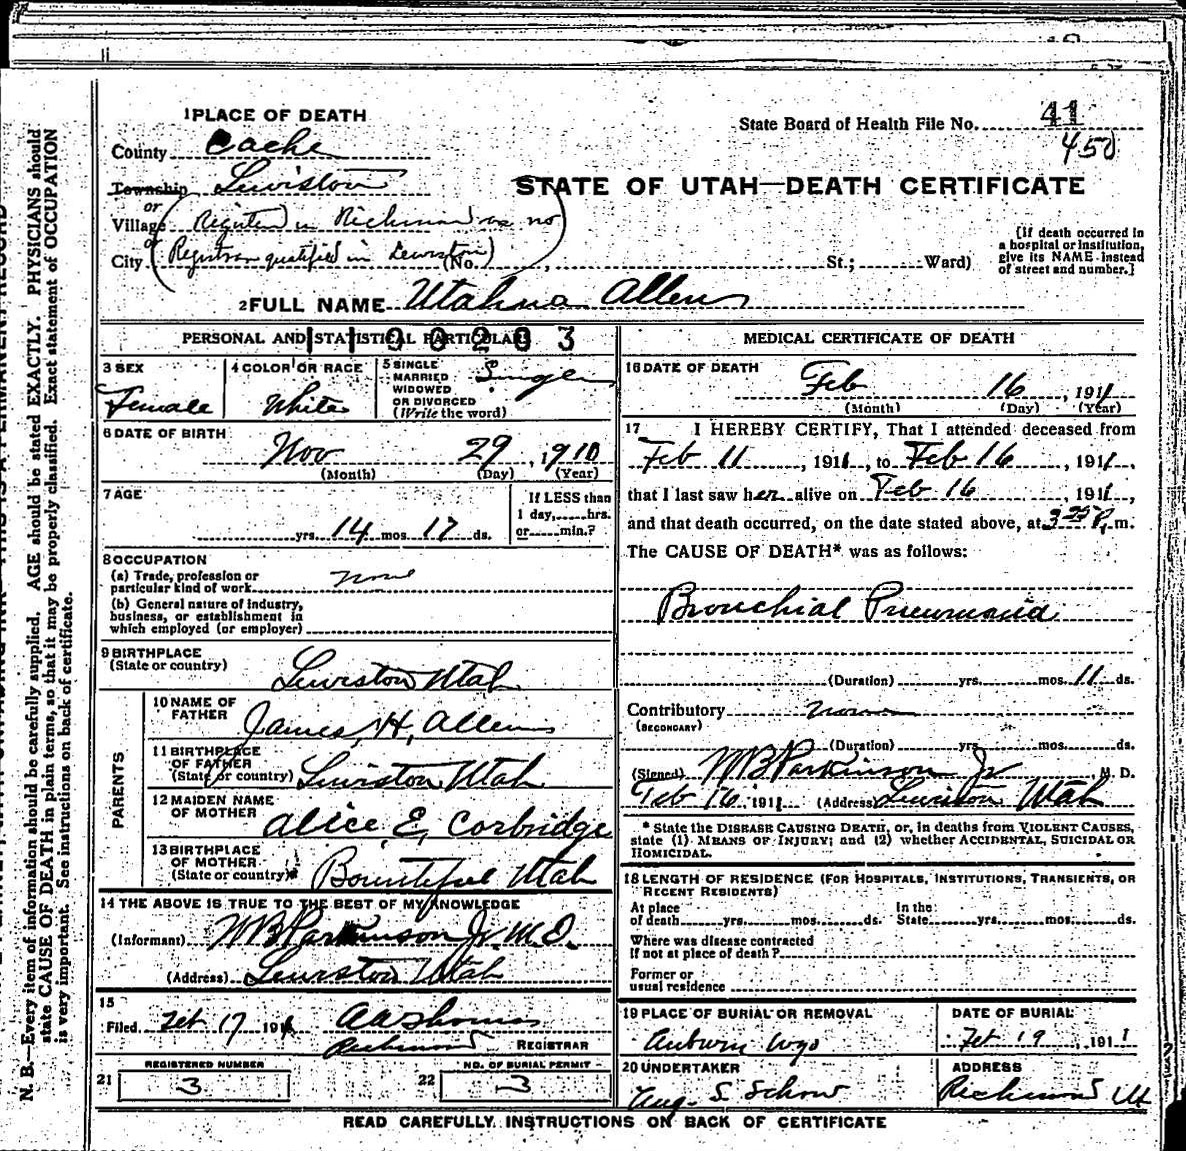 1 PLACE OF DEATH
County Cache
Township Lewiston
or
Village (Registered in Richmond as no
or
City Registrar qualified in Lewiston) (No. , St.; Ward)
State Board of Health File No. 41
450
STATE OF UTAH—DEATH CERTIFICATE
[If death occurred in
a hospital or institution,
give its NAME instead
of street and number.]
2 FULL NAME Utahna Allen
PERSONAL AND STATISTICAL PARTICULARS
1100203
3 SEX
Female
4 COLOR OR RACE
White
5 SINGLE
MARRIED
WIDOWED
OR DIVORCED
(Write the word)
Single
6 DATE OF BIRTH
Nov 29, 1910
(Month) (Day) (Year)
7 AGE
yrs. 14 mos. 17 ds.
If LESS than
1 day, hrs.
or min.?
8 OCCUPATION
(a) Trade, profession or
particular kind of work none
(b) General nature of industry,
business, or establishment in
which employed (or employer)
9 BIRTHPLACE
(State or country)
Lewiston Utah
PARENTS
10 NAME OF
FATHER
James H. Allen
11 BIRTHPLACE
OF FATHER
(State or country) Lewiston Utah
12 MAIDEN NAME
OF MOTHER
Alice E. Corbridge
13 BIRTHPLACE
OF MOTHER
(State or country) Bountiful Utah
14 THE ABOVE IS TRUE TO THE BEST OF MY KNOWLEDGE
(Informant) WB Parkinson Jr. M.D.
(Address) Lewiston Utah
15
Filed Feb 17 191 AA Thomas
Richmond REGISTRAR
REGISTERED NUMBER
21 3
NO. OF BURIAL PERMIT
22 3
MEDICAL CERTIFICATE OF DEATH
16 DATE OF DEATH
Feb 16, 1911
(Month) (Day) (Year)
17 I HEREBY CERTIFY, That I attended deceased from
Feb 11, 1911, to Feb 16, 1911,
that I last saw her alive on Feb 16, 1911,
and that death occurred, on the date stated above, at 3 25 P. m.
The CAUSE OF DEATH* was as follows:
Bronchial Pneumonia
(Duration) yrs. mos. 11 ds.
Contributory none
(SECONDARY)
(Duration) yrs. mos. ds.
(Signed) WB Parkinson Jr M. D.
Feb 16 1911 (Address) Lewiston Utah
* State the DISEASE CAUSING DEATH, or, in deaths from VIOLENT CAUSES,
state (1) MEANS OF INJURY; and (2) whether ACCIDENTAL, SUICIDAL OR
HOMICIDAL.
18 LENGTH OF RESIDENCE (FOR HOSPITALS, INSTITUTIONS, TRANSIENTS, OR
RECENT RESIDENTS)
At place In the
of death yrs. mos. ds. State yrs. mos. ds.
Where was disease contracted
if not at place of death?
Former or
usual residence
19 PLACE OF BURIAL OR REMOVAL
Auburn Wyo
DATE OF BURIAL
Feb 19, 1911
20 UNDERTAKER
Aug. S. Schow
ADDRESS
Richmond Ut
READ CAREFULLY INSTRUCTIONS ON BACK OF CERTIFICATE
N. B.—Every item of information should be carefully supplied. AGE should be stated EXACTLY. PHYSICIANS should
state CAUSE OF DEATH in plain terms, so that it may be properly classified. Exact statement of OCCUPATION
is very important. See instructions on back of certificate.